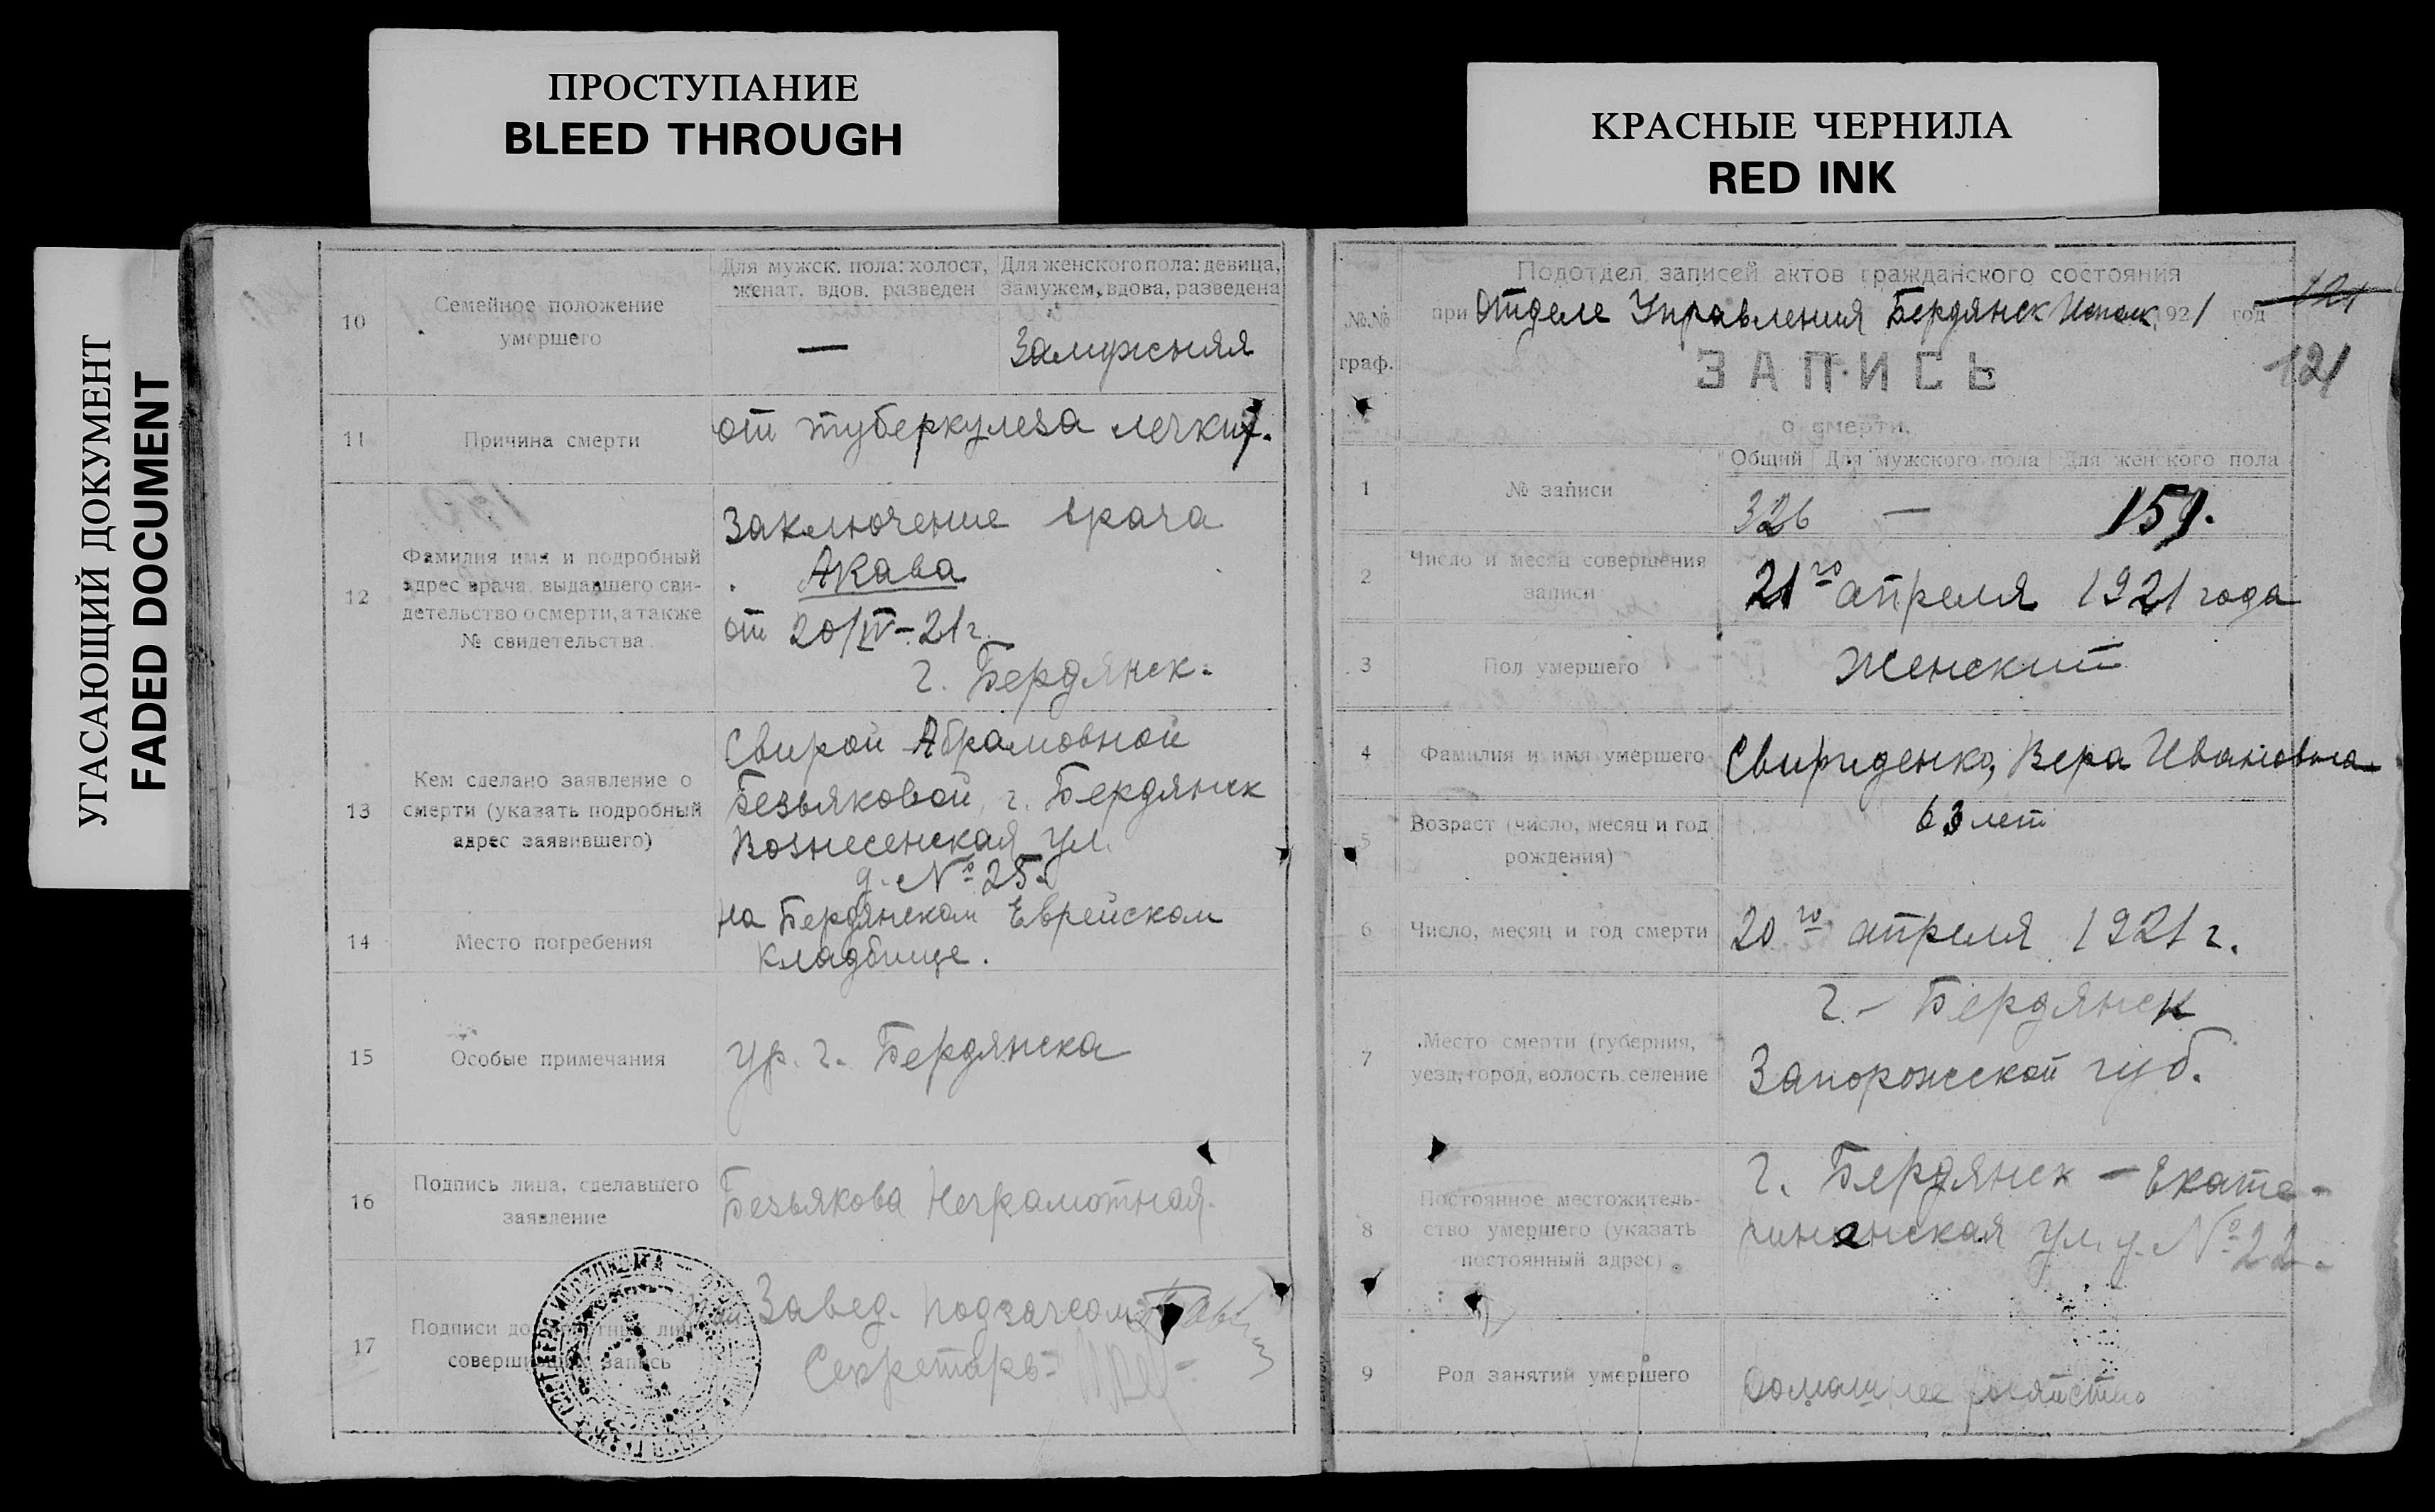 ПРОСТУПАНИЕ
BLEED THROUGH
КРАСНЫЕ ЧЕРНИЛА
RED INK
УГАСАЮЩИЙ ДОКУМЕНТ
FADED DOCUMENT
10
Семейное положение
умершего
Для мужск. пола: холост,
женат, вдов, разведен
Для женского пола: девица,
замужем, вдова, разведена
—
Замужняя
11
Причина смерти
от туберкулеза легких.
12
Фамилия имя и подробный
адрес врача, выдавшего сви-
детельство о смерти, а также
№ свидетельства.
Заключение врача
Акава
от 20/IV-21 г.
г. Бердянск.
13
Кем сделано заявление о
смерти (указать подробный
адрес заявившего)
Свирой Абрамовной
Безьяковой, г. Бердянск
Вознесенская ул.
д. № 25.
14
Место погребения
на Бердянском Еврейском
кладбище.
15
Особые примечания
ур. г. Бердянска
16
Подпись лица, сделавшего
заявление
Безьякова Неграмотная.
17
Подписи
совершивших запись
Завед. подзагсом
Секретарь
Подотдел записей актов гражданского состояния
№№
граф.
при Отделе Управления Бердянск 1921 год
121
121
ЗАПИСЬ
о смерти.
1
№ записи
Общий
Для мужского пола
Для женского пола
326
—
159.
2
Число и месяц совершения
записи
21го апреля 1921 года
3
Пол умершего
Женский
4
Фамилия и имя умершего
Свириденко, Вера Ивановна
5
Возраст (число, месяц и год
рождения)
63 лет
6
Число, месяц и год смерти
20го апреля 1921 г.
7
Место смерти (губерния,
уезд, город, волость, селение
г. - Бердянск
Запорожской губ.
8
Постоянное местожитель-
ство умершего (указать
постоянный адрес)
г. Бердянск - Екате-
рининская ул. д. № 22.
9
Род занятий умершего
Домашнее хозяйство